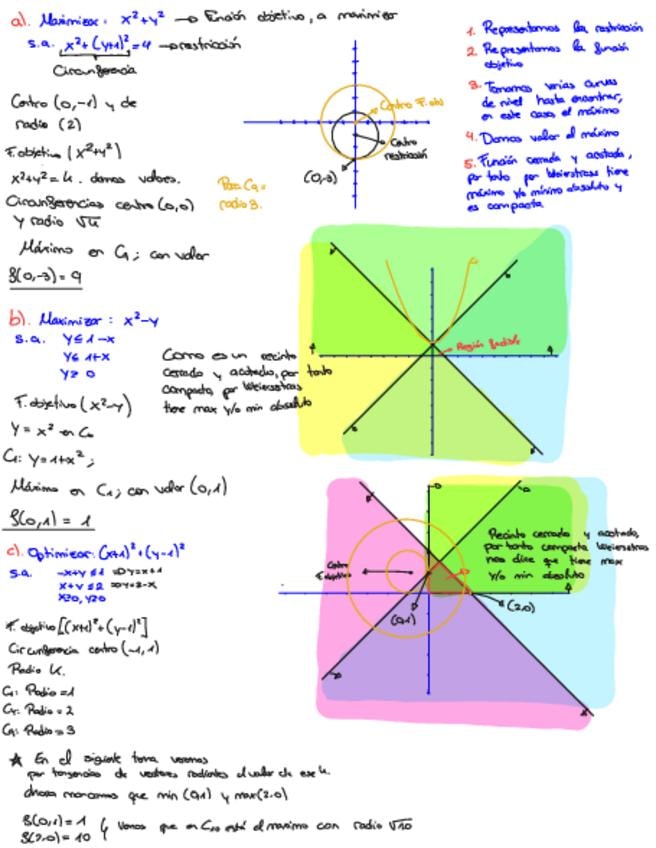 a). Maximizar: x²+y² → Función objetivo, a maximizar
s.a. x²+(y+1)²=4 → restricción
Circunferencia
Centro (0,-1) y de
radio (2)
F. objetivo (x²+y²)
x²+y²=k. damos valores.
Circunferencias centro (0,0)
y radio √k
Máximo en C₉; con valor
f(0,-3) = 9
Para C₉ =
radio 3.
Centro F. obj
Centro
restricción
(0,-3)
1. Representamos la restricción
2. Representamos la función
objetivo
3. Tomamos varias curvas
de nivel hasta encontrar,
en este caso el máximo
4. Damos valor al máximo
5. Función cerrada y acotada,
por tanto por Weierstrass tiene
máximo y/o mínimo absoluto y
es compacta.
b). Maximizar: x²-y
s.a. y≤1-x
y≤ 1+x
y≥ 0
Como es un recinto
cerrado y acotado, por tanto
compacto, por Weierstrass
tiene max y/o min absoluto
F. objetivo (x²-y)
y = x² en C₀
C₁: y=1+x²;
Máximo en C₁; con valor (0,1)
f(0,1) = 1
Región factible
c). Optimizar: (x+1)²+(y-1)²
s.a. -x+y ≤ 1 ⇒ y=x+1
x+y ≤ 2 ⇒ y=2-x
x≥0, y≥0
F. objetivo [(x+1)²+(y-1)²]
Circunferencia centro (-1,1)
Radio k.
C₁: Radio=1
C₄: Radio=2
C₉: Radio=3
Centro
F. objetivo
(0,1)
(2,0)
Recinto cerrado y acotado,
por tanto compacto Weierstrass
nos dice que tiene max
y/o min absoluto
★ En el siguiente tema veremos
por tangencias de vectores el valor de ese k.
Ahora marcamos que min (0,1) y max(2,0)
f(0,1) = 1
f(2,0) = 10 } Vemos que en C₁₀ está el maximo con radio √10